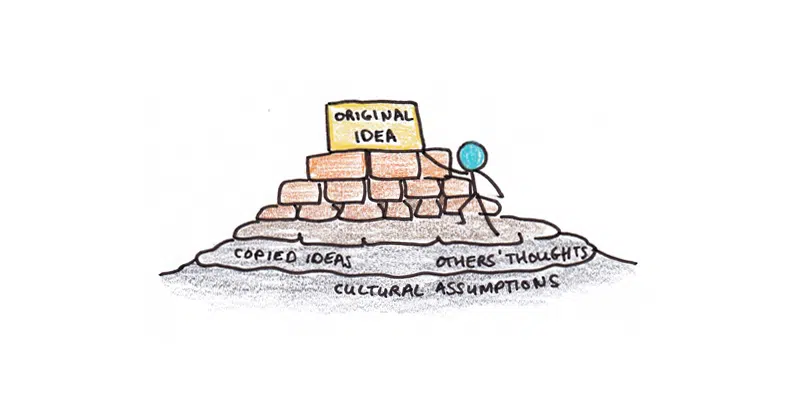 ORIGINAL
IDEA
COPIED IDEAS
OTHERS' THOUGHTS
CULTURAL ASSUMPTIONS